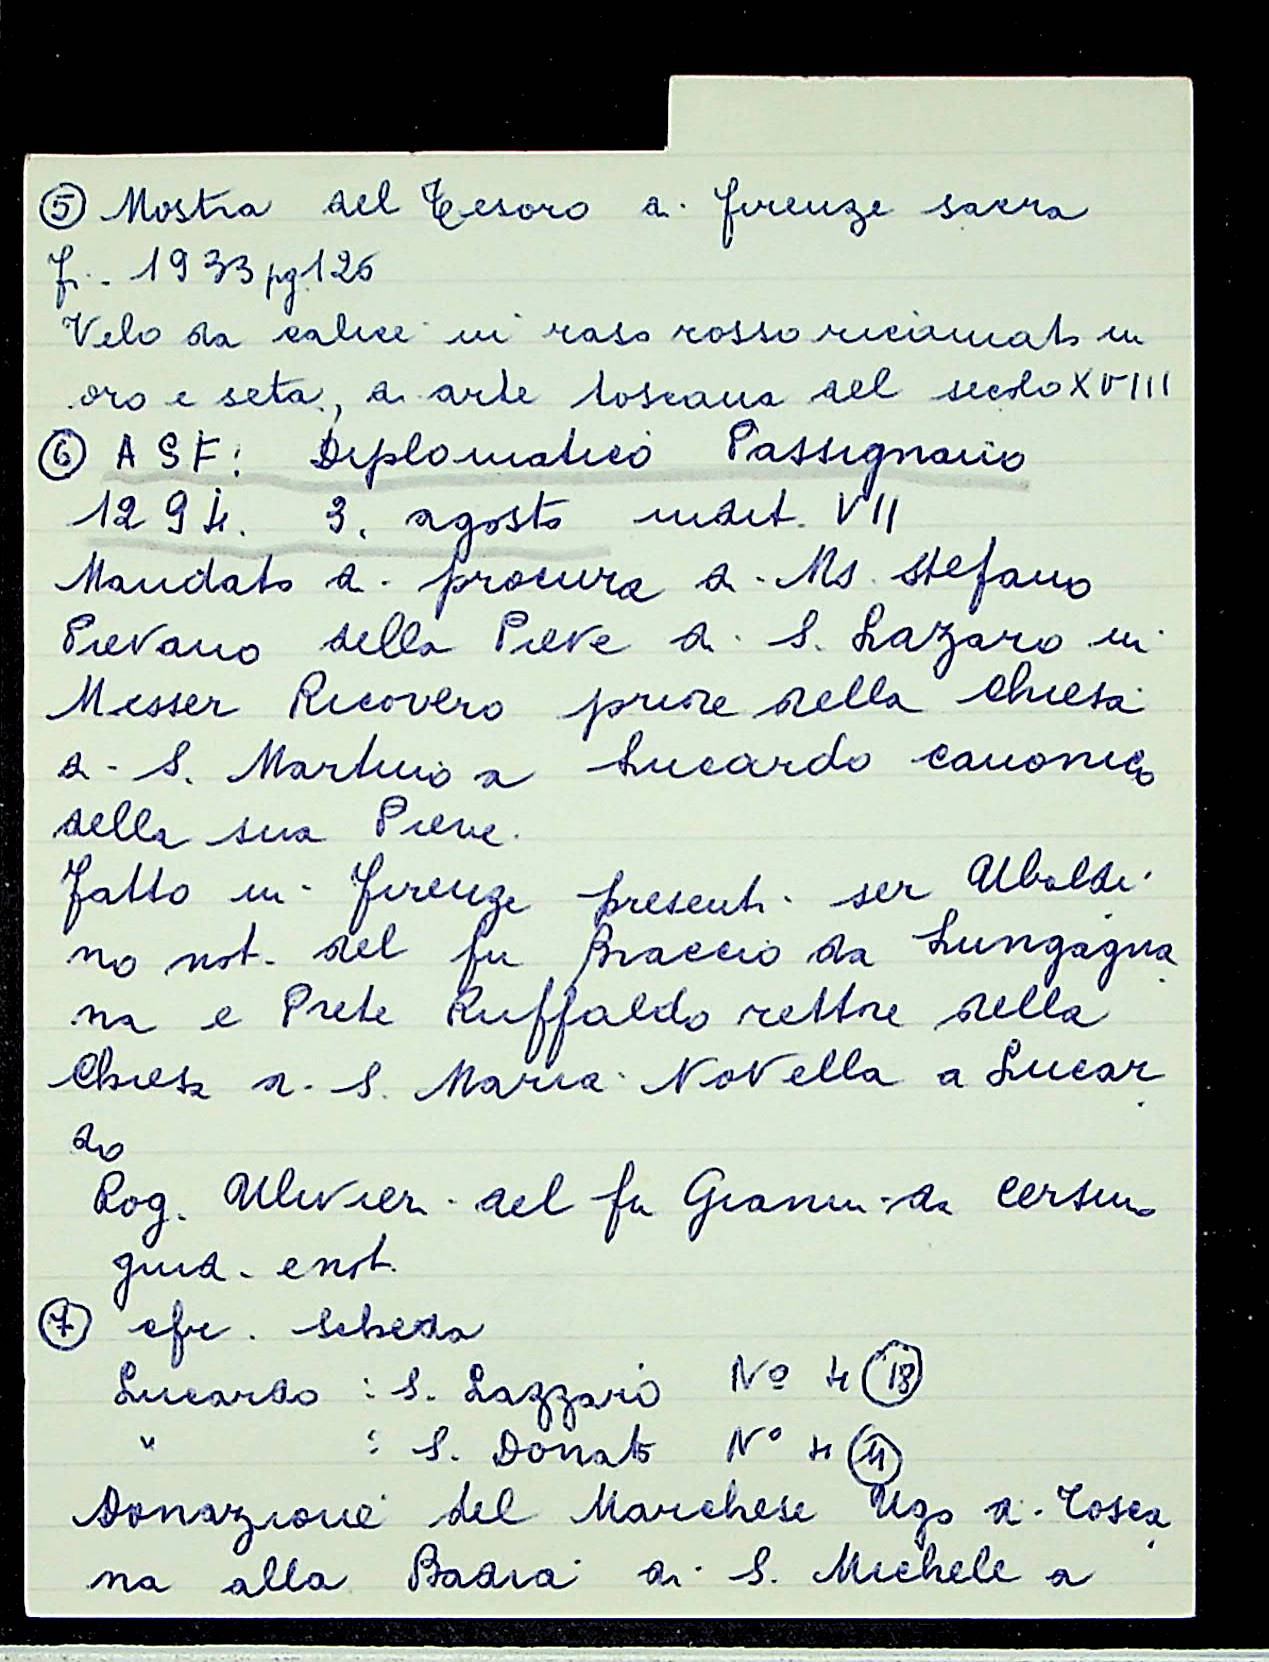 ⑤ Mostra del Tesoro di Firenze sacra
Fi. 1933 pg. 126
Velo da calice in raso rosso ricamato in
oro e seta, di arte toscana del secolo XVIII
⑥ ASF: Diplomatico Passignano
1294. 3. agosto indit. VII
Mandato di procura di Ms. Stefano
Pievano della Pieve di S. Lazaro in
Messer Ricovero priore della Chiesa
di S. Martino a Lucardo canonico
della sua Pieve.
Fatto in Firenze presenti ser Ubaldi
no not. del fu Braccio da Lungagna
na e Prete Ruffaldo rettore della
Chiesa di S. Maria Novella a Lucar
do
Rog. Ulivieri del fu Gianni da Certino
giud. e not.
⑦ cfr. scheda
Lucardo : S. Lazzaro Nº 4 ⑱
" : S. Donato N° 4 ⑪
Donazione del Marchese Ugo di Tosca
na alla Badia di S. Michele a